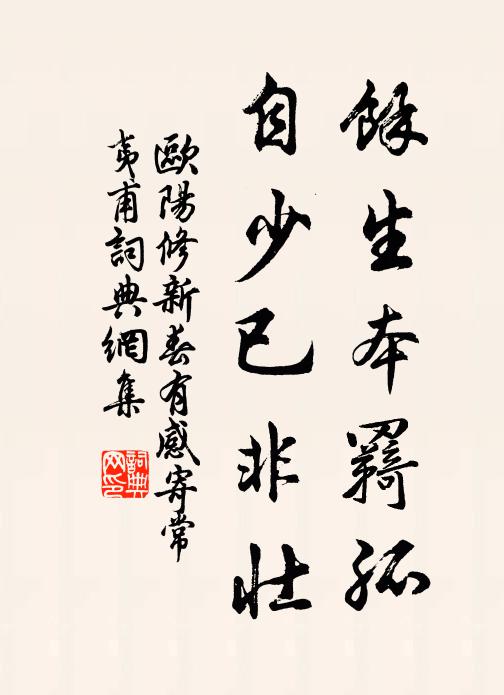 餘生本羇孤
自少已非壯
歐陽修新春有感寄常
夷甫詞典網集
詞典
网印